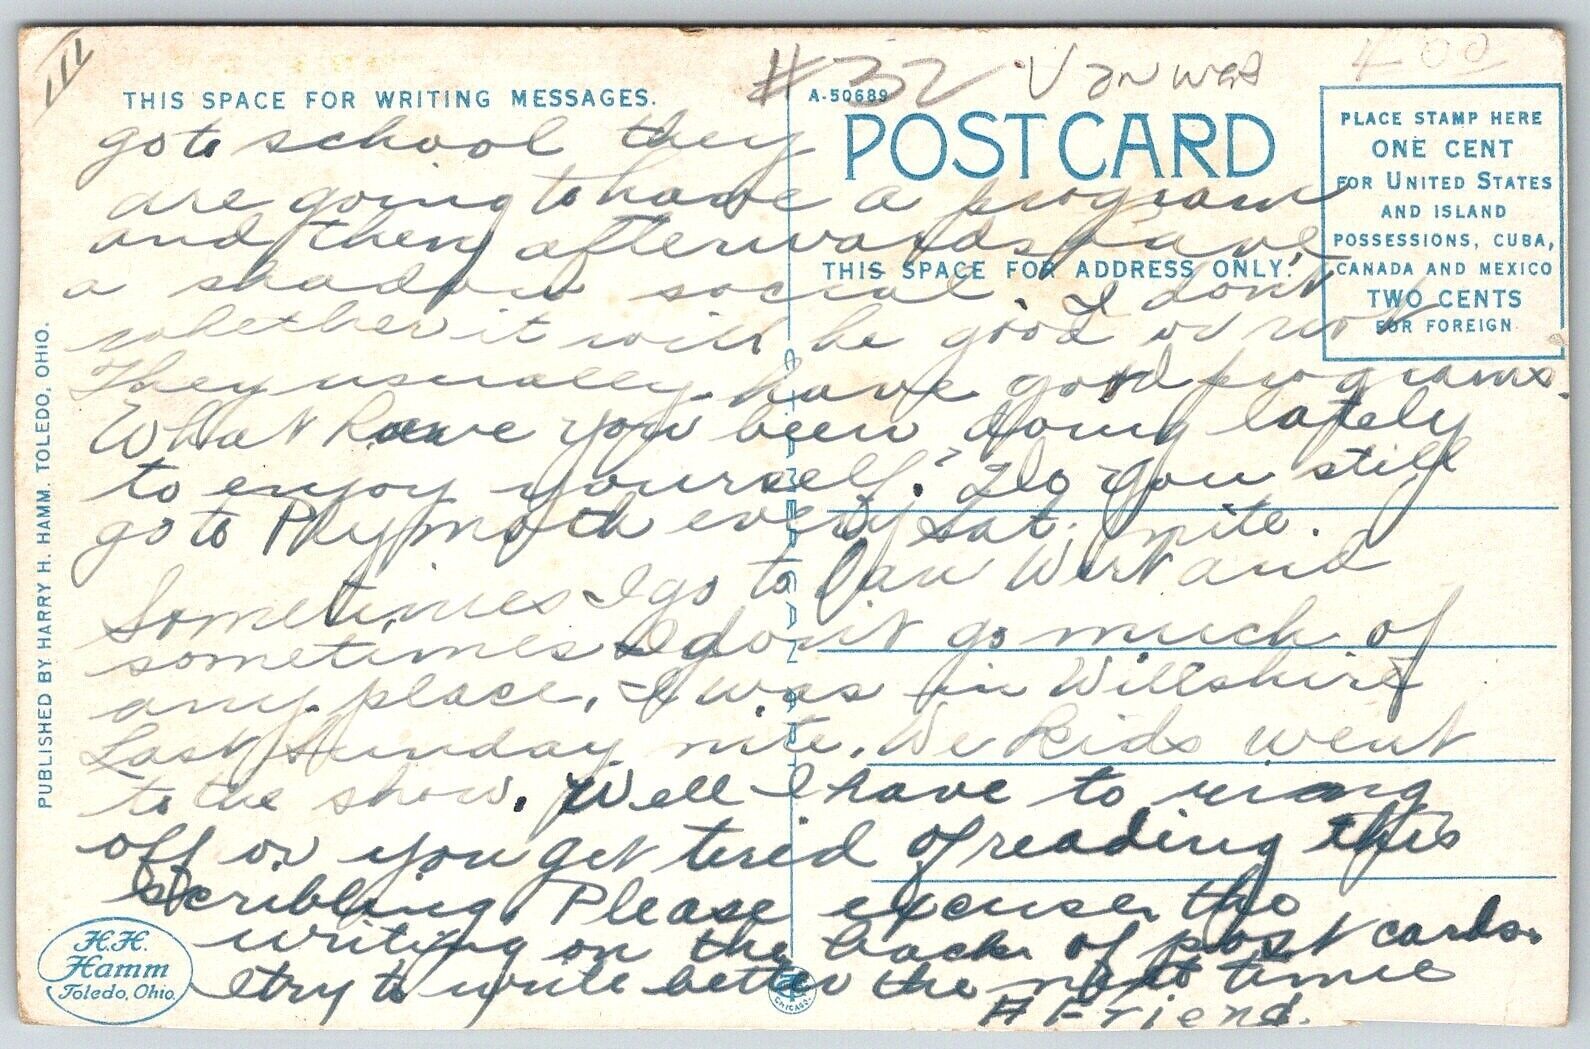 III
#32 Van Wert
4 00
THIS SPACE FOR WRITING MESSAGES.
A-50689
POST CARD
PLACE STAMP HERE
ONE CENT
FOR UNITED STATES
AND ISLAND
POSSESSIONS, CUBA,
CANADA AND MEXICO
TWO CENTS
FOR FOREIGN
THIS SPACE FOR ADDRESS ONLY.
go to school they
are going to have a program
and then afterwards have
a shadow social. I don't
whether it will be good or not
They usually have good programs.
What have you been doing lately
to enjoy yourself? Do you still
go to Plymoth every Sat. nite.
Sometimes I go to Van Wert and
sometimes I don't go much of
any place. I was in Willshire
Last Sunday nite. We kids went
to the show. Well I have to ring
off or you get tired of reading this
scribling. Please excuse the
writing on the back of post cards.
I try to write better the next time
A Friend.
PUBLISHED BY HARRY H. HAMM. TOLEDO, OHIO.
H.H.
Hamm
Toledo, Ohio.
C.T. AMERICAN ART
CHICAGO